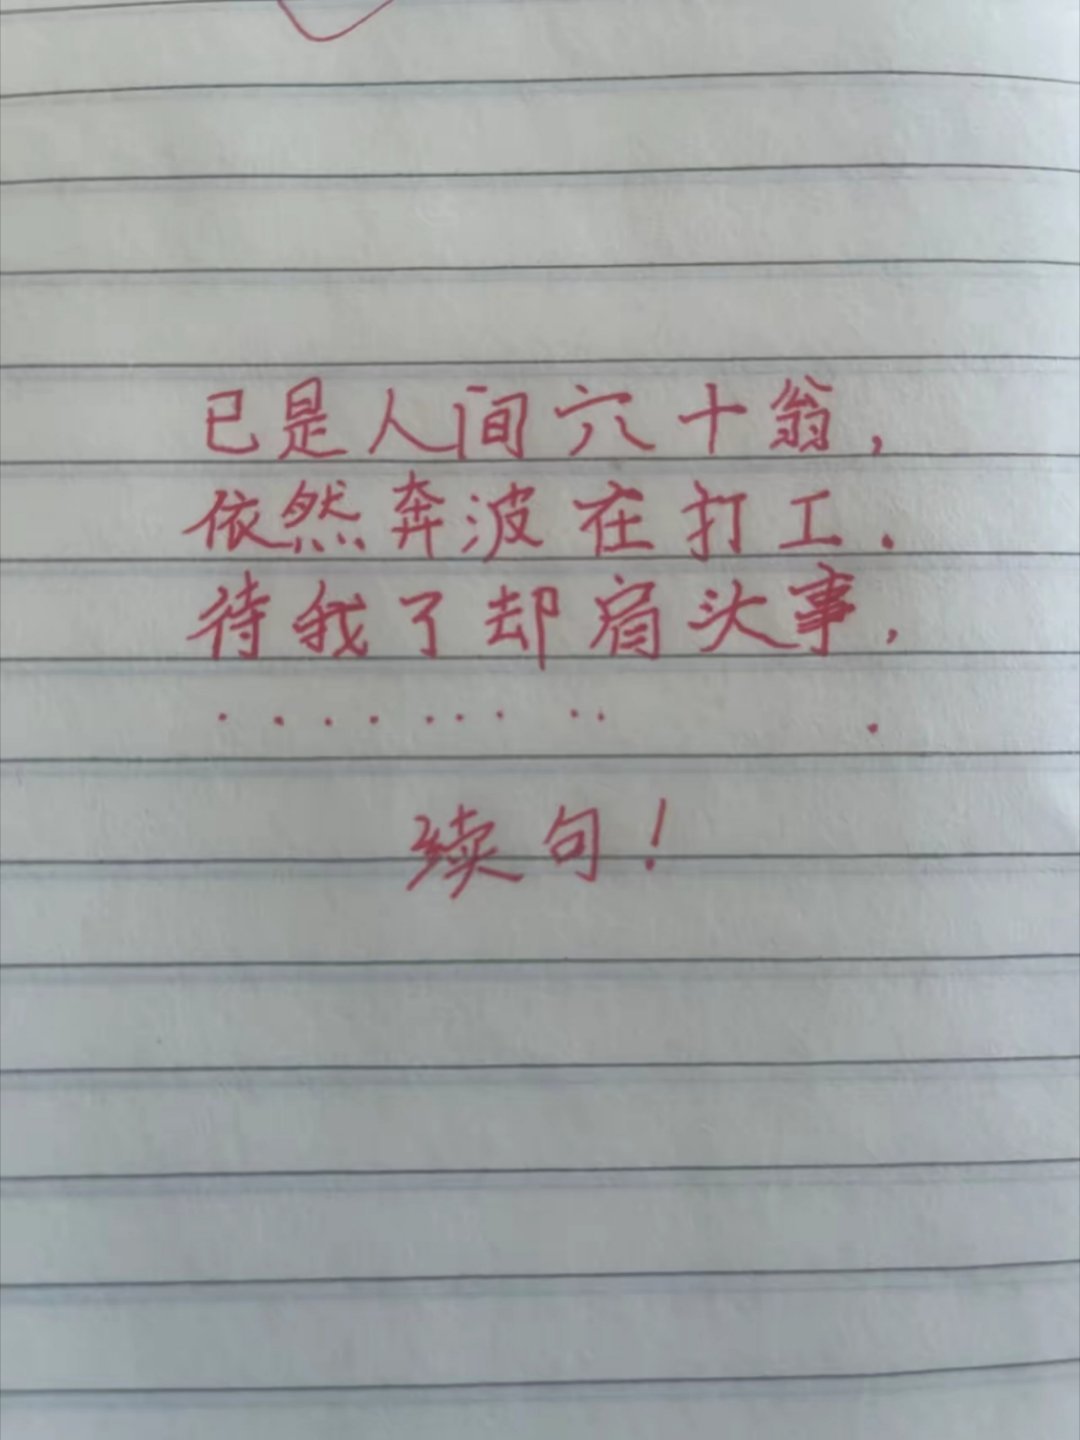 已是人间六十翁，
依然奔波在打工．
待我了却肩头事，
......... .
续句！